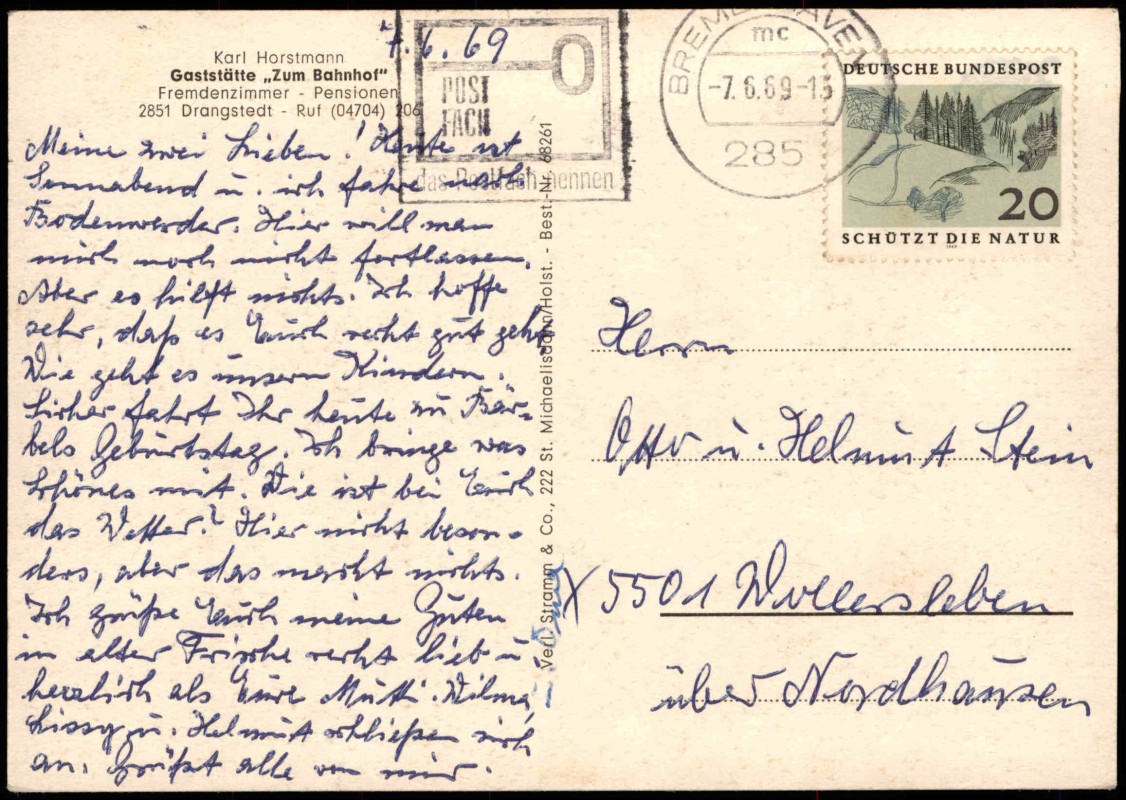 Karl Horstmann
Gaststätte „Zum Bahnhof"
Fremdenzimmer - Pensionen
2851 Drangstedt - Ruf (04704) 206
7.6.69
Meine zwei Lieben! Heute ist
Sonnabend u. ich fahre nach
Bodenwerder. Hier will man
mich noch nicht fortlassen.
Aber es hilft nichts. Ich hoffe
sehr, daß es Euch recht gut geht.
Wie geht es unsern Kindern.
Sicher fahrt Ihr heute zu Bär-
bels Geburtstag. Ich bringe was
Schönes mit. Wie ist bei Euch
das Wetter? Hier nicht beson-
ders, aber das macht nichts.
Ich grüße Euch meine Guten
in alter Frische recht lieb u.
herzlich als Eure Mutti. Wilma,
Lissy u. Helmut schließen sich
an. Grüßt alle von mir.
POST
FACH
das Postfach nennen
Verl. Stramm & Co., 222 St. Michaelisdonn/Holst. - Best.-Nr. 68261
BREMERHAVEN
mc
-7.6.69-15
285
DEUTSCHE BUNDESPOST
20
SCHÜTZT DIE NATUR
1969
Herrn
Otto u. Helmut Stein
X 5501 Wollersleben
über Nordhausen